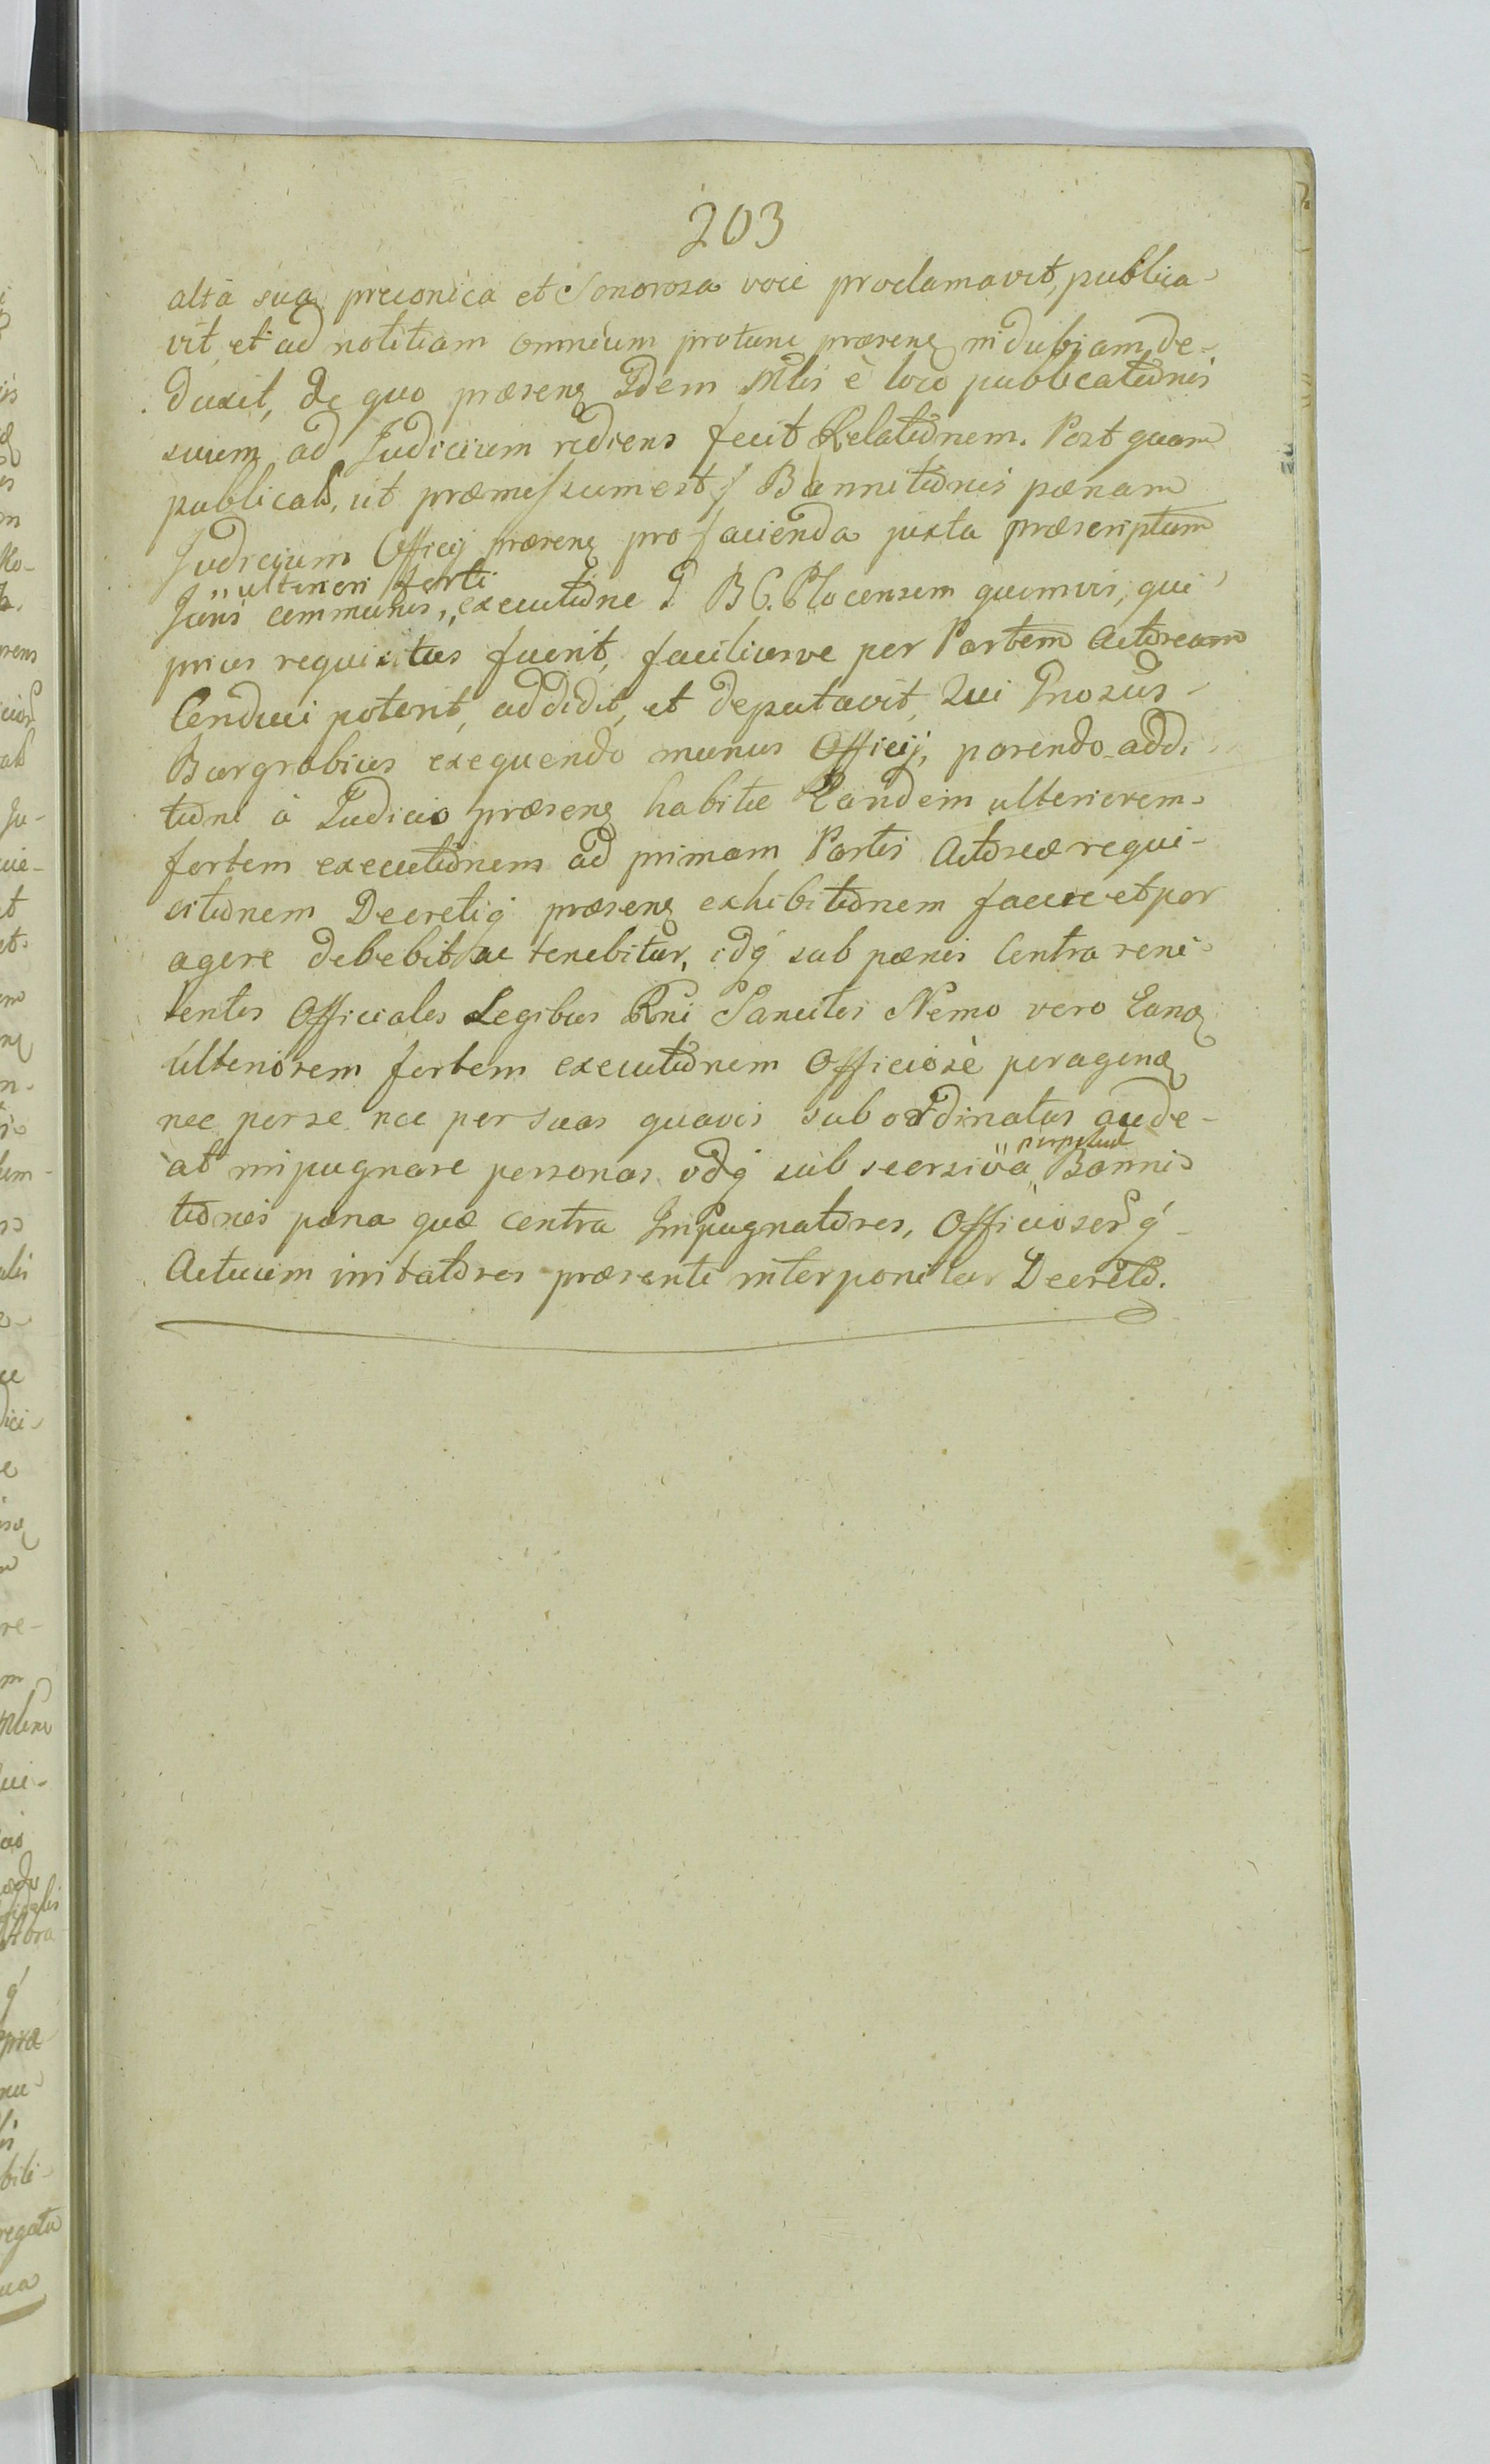 203
altâ suâ preconica et Sonorosa voce proclamavit, publica-
vit, et ad notitiam omnium protunc præsen indubiam de-
duxit, de quo præsen Idem Mlis è loco publicationis
suum ad Judicium rediens fecit Relationem. Post quam
publicata, ut præmissum est, Bannitionis pænam
Judicium Officij præsen pro facienda juxta præscriptum
ulteriori forti
Juris communis,, executione B C. Plocensem quemvis, qui
prius requisitus fuerit, faciliusve per Partem Actoream
Conduci poterit, addidit, et deputavit, Qui Gnosus
Burgrabius exequendo munus Officij, parendo addi
tioni à Judicio præsen habitæ Eandem ulteriorem
fortem executionem ad primam Partis Actoreæ requi-
sitionem Decretiq præsen exhibitionem facere et per
agere debebit ac tenebitur, idq sub pænis Contra reni
tentes Officiales Legibus Rni Sancitis Nemo vero Eand
Ulteriorem fortem executionem Officiosè peragend
nec per se nec per suas quavis subordinatas aude-
at impugnare personas idq sub seorsiva,, Banni
perpetuæ
tionis pæna quæ contra Impugnatores, Officioserq
Actuum irritatores præsenti interponitur Decreto.